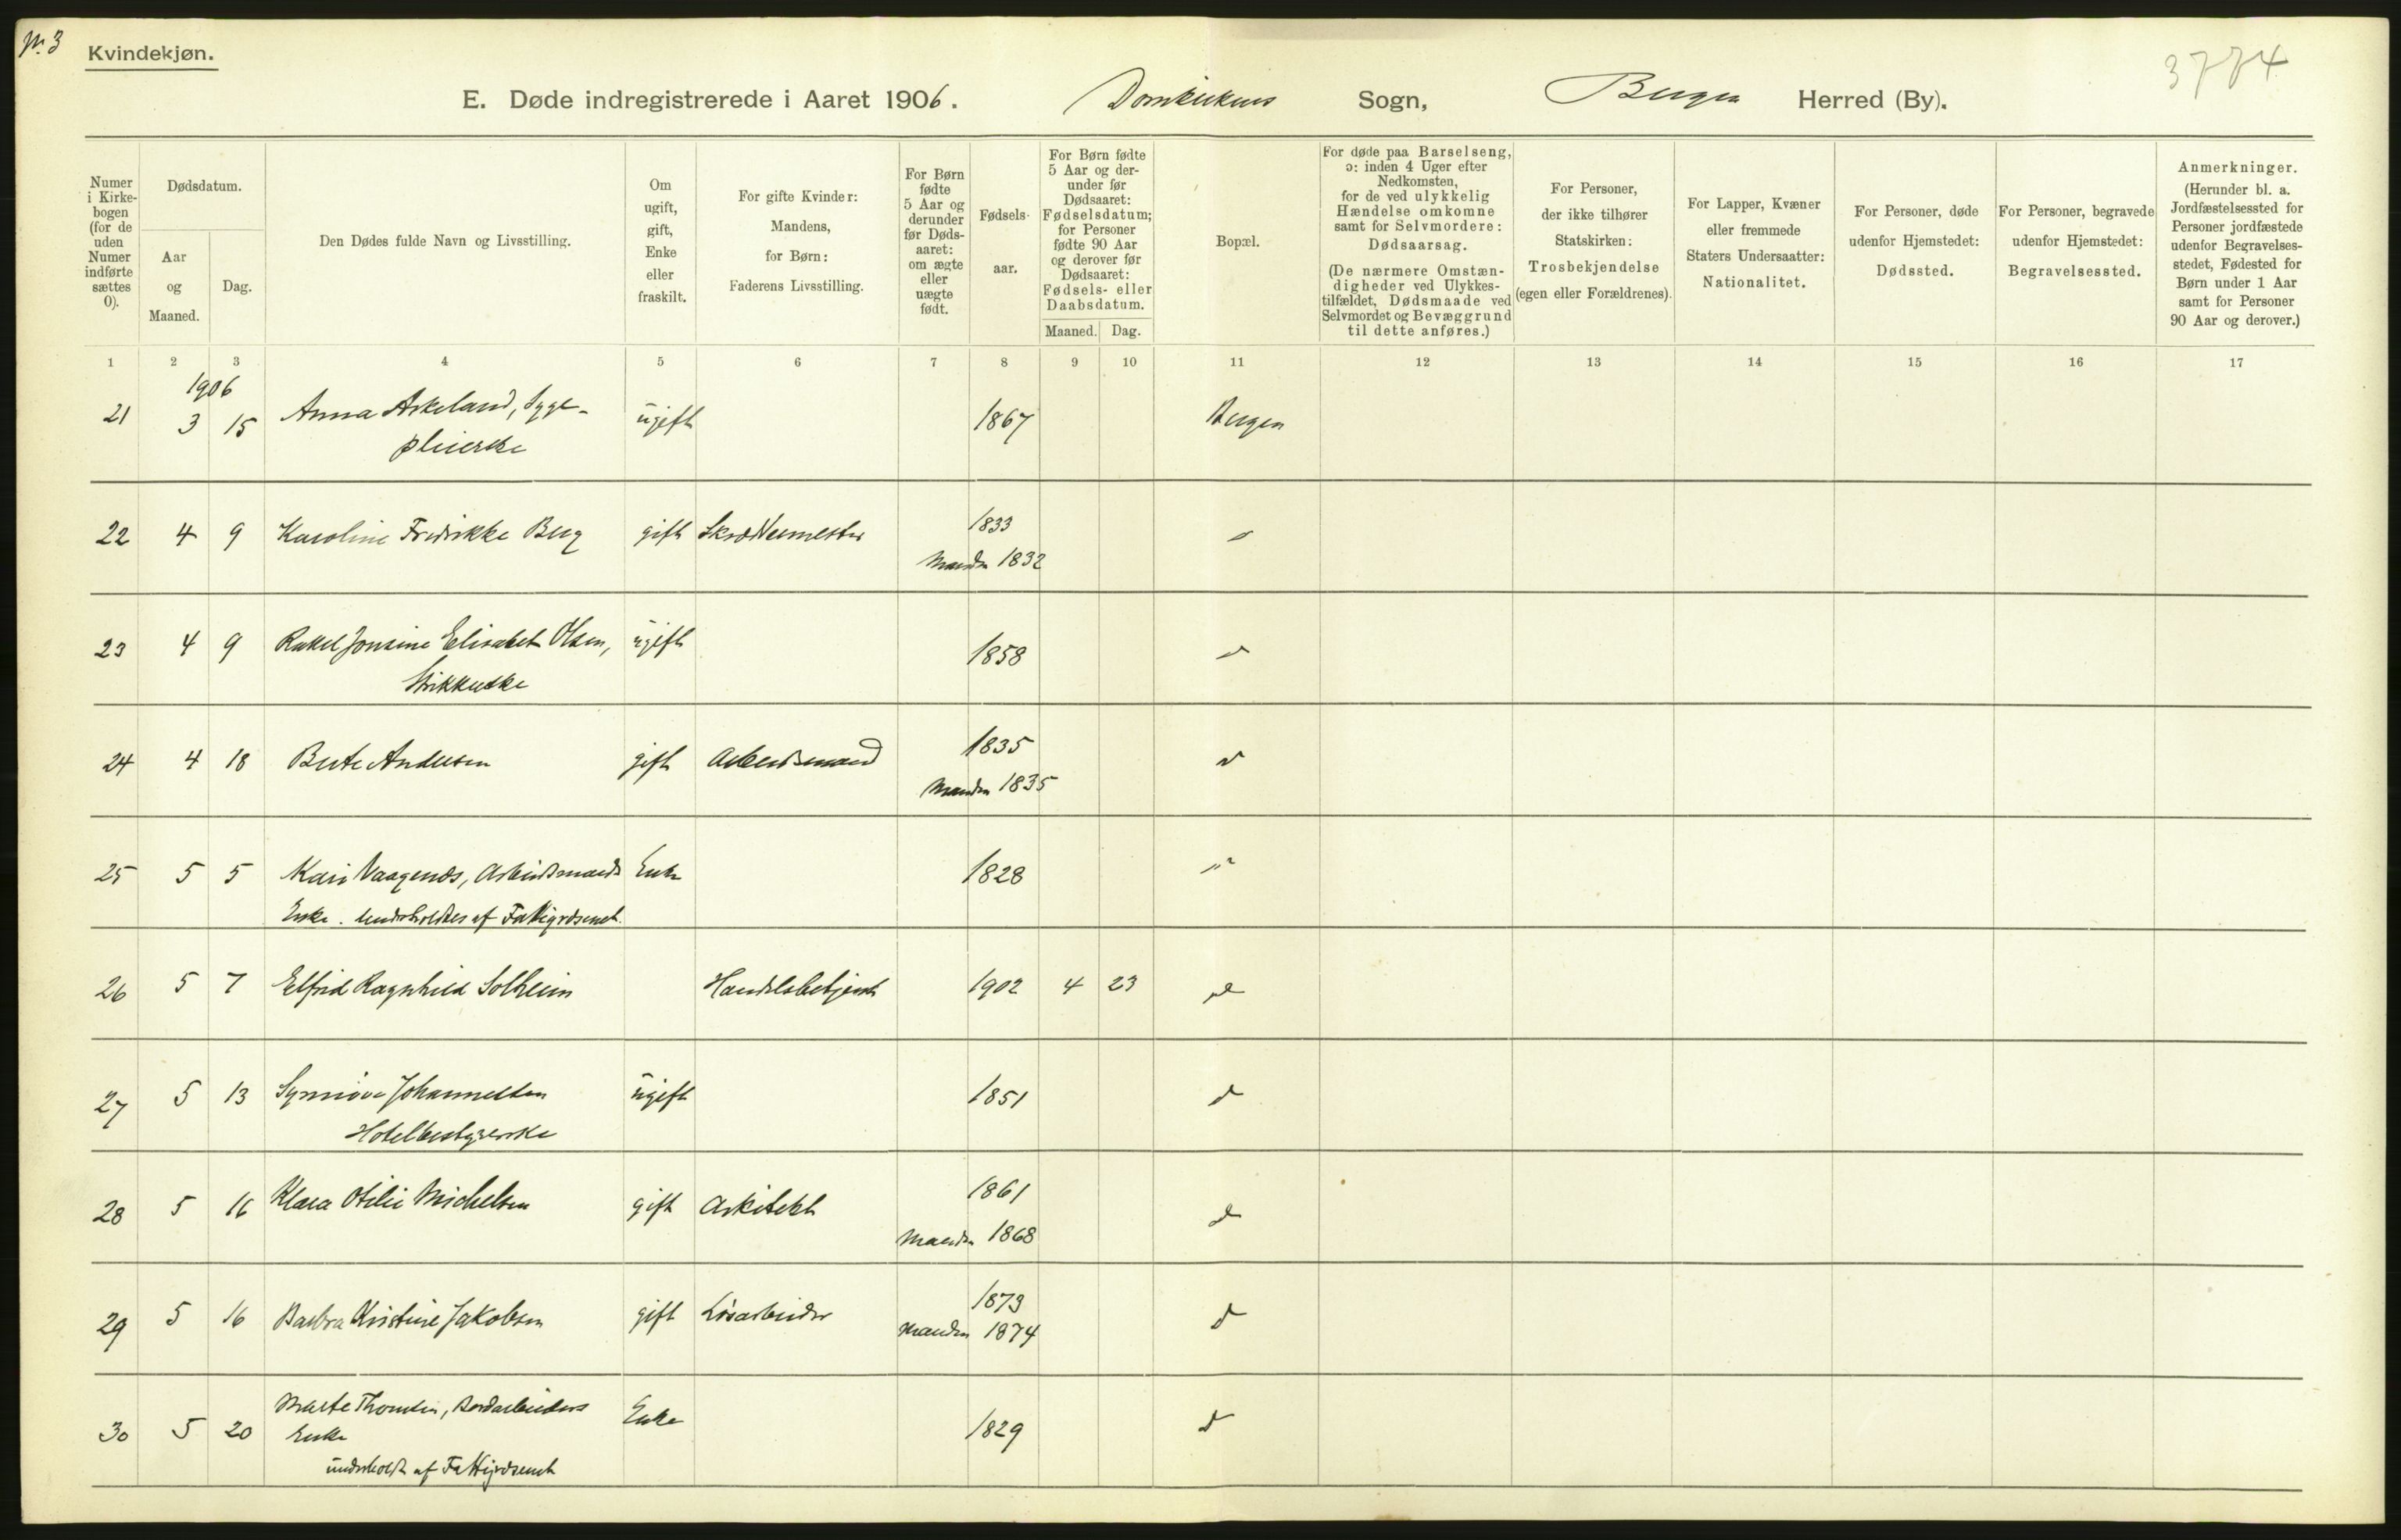 No. 3
Kvindekjøn.
3774
E. Døde indregistrerede i Aaret 1906. Domkirkens Sogn, Bergen Herred (By).
Numer i Kirke-bogen (for de uden Numer indførte sættes 0).
Dødsdatum.
Aar og Maaned.
Dag.
Den Dødes fulde Navn og Livsstilling.
Om ugift, gift, Enke eller fraskilt.
For gifte Kvinder: Mandens, for Børn: Faderens Livsstilling.
For Børn fødte 5 Aar og derunder før Døds-aaret: om ægte eller uægte født.
Fødsels-aar.
For Børn fødte 5 Aar og der-under før Dødsaaret: Fødselsdatum; for Personer fødte 90 Aar og derover før Dødsaaret: Fødsels- eller Daabsdatum.
Maaned. Dag.
Bopæl.
For døde paa Barselseng, ɔ: inden 4 Uger efter Nedkomsten, for de ved ulykkelig Hændelse omkomne samt for Selvmordere: Dødsaarsag.
(De nærmere Omstæn-digheder ved Ulykkes-tilfældet, Dødsmaade ved Selvmordet og Bevæggrund til dette anføres.)
For Personer, der ikke tilhører Statskirken: Trosbekjendelse (egen eller Forældrenes).
For Lapper, Kvæner eller fremmede Staters Undersaatter: Nationalitet.
For Personer, døde udenfor Hjemstedet: Dødssted.
For Personer, begravede udenfor Hjemstedet: Begravelsessted.
Anmerkninger.
(Herunder bl. a. Jordfæstelsessted for Personer jordfæstede udenfor Begravelses-stedet, Fødested for Børn under 1 Aar samt for Personer 90 Aar og derover.)
1 2 3 4 5 6 7 8 9 10 11 12 13 14 15 16 17
1906
21 3 15 Anna Askeland, Syge- ugift 1867 Bergen
pleierske
22 4 9 Karoline Fredrikke Berg gift Skræddermester 1833 d
Manden 1832
23 4 9 Rakel Jonsine Elisabet Olsen, ugift 1858 d
Strikkerske
24 4 18 Berte Andersen gift Arbeidsmand 1835 d
Manden 1835
25 5 5 Kari Vaagenes, Arbeidsmands Enke 1828 "
Enke. Underholdtes af Fattigvæsenet.
26 5 7 Elfrid Ragnhild Solheim Handelsbetjent 1902 4 23 d
27 5 13 Synnøve Johannessen ugift 1851 d
Hotelbestyrerske
28 5 16 Klara Otilie Michelsen gift Arkitekt 1861 d
Manden 1868
29 5 16 Barbra Kristine Jakobsen gift Løsarbeider 1873 d
Manden 1874
30 5 20 Marte Thomsen, Jordarbeiders Enke 1829 d
Enke
underholdt af Fattigvæsenet